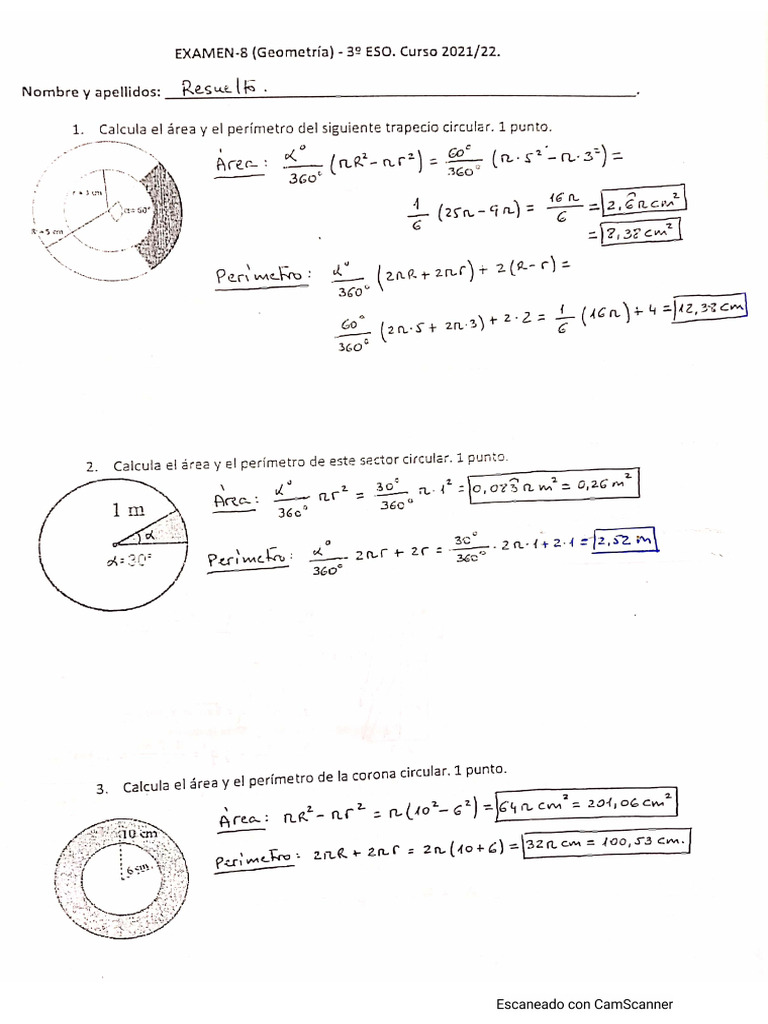 EXAMEN-8 (Geometría) - 3º ESO. Curso 2021/22.
Nombre y apellidos: Resuelto.
1. Calcula el área y el perímetro del siguiente trapecio circular. 1 punto.
Área: α°/360° (πR² - πr²) = 60°/360° (π·5² - π·3²) =
1/6 (25π - 9π) = 16π/6 = 2,6̂π cm²
= 8,38 cm²
r = 3 cm
α = 60°
R = 5 cm
Perímetro: α°/360° (2πR + 2πr) + 2(R - r) =
60°/360° (2π·5 + 2π·3) + 2·2 = 1/6 (16π) + 4 = 12,38 cm
2. Calcula el área y el perímetro de este sector circular. 1 punto.
1 m
α
α = 30°
Área: α°/360° πr² = 30°/360° π·1² = 0,083̂π m² = 0,26 m²
Perímetro: α°/360° 2πr + 2r = 30°/360° · 2π·1 + 2·1 = 2,52 m
3. Calcula el área y el perímetro de la corona circular. 1 punto.
10 cm
6 cm.
Área: πR² - πr² = π(10² - 6²) = 64π cm² = 201,06 cm²
Perímetro: 2πR + 2πr = 2π(10 + 6) = 32π cm = 100,53 cm.
Escaneado con CamScanner